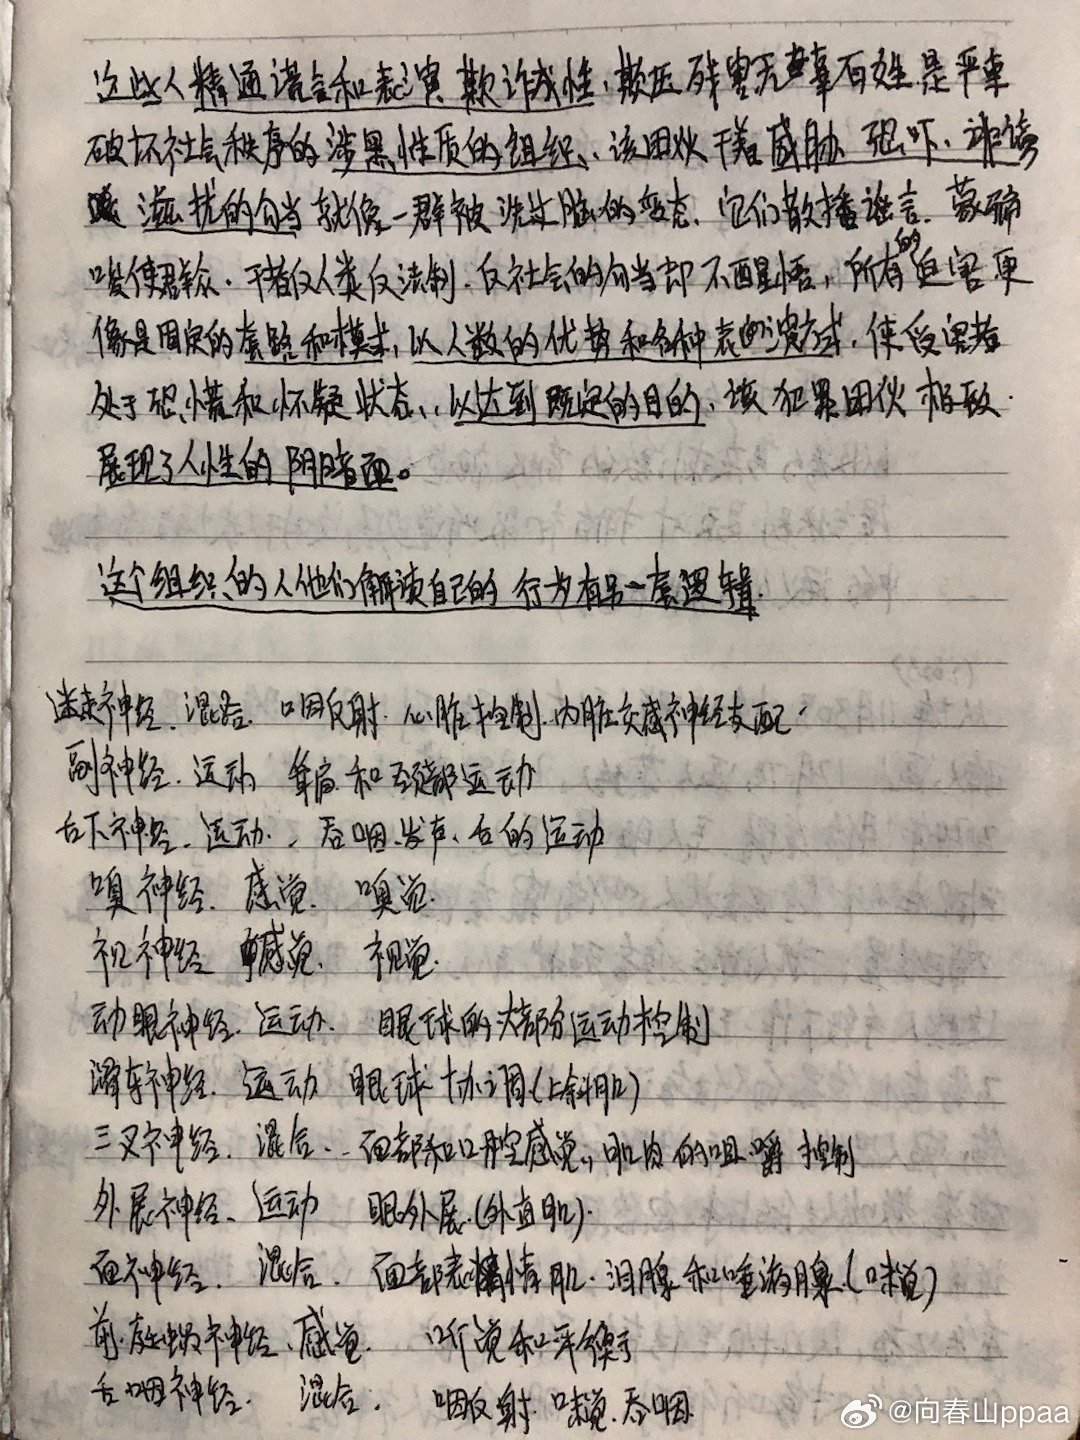 这些人精通谎言和表演欺诈成性、欺压残害无辜百姓是严重
破坏社会秩序的涉黑性质的组织、该团伙干着威胁、恐吓、诽谤
滋扰的勾当就像一群被洗过脑的变态、它们散播谣言、蒙骗
唆使群众.干着反人类反法制.反社会的勾当却不醒悟,所有的迫害更
像是固定的套路和模式,以人数的优势和各种表演方式.使受害者
处于恐慌和怀疑状态、以达到既定的目的,该犯罪团伙极致
展现了人性的阴暗面。
这个组织的人他们解读自己的行为有另一套逻辑.
迷走神经.混合.咽反射.心脏控制.内脏交感神经支配.
副神经.运动 耸肩和颈部运动
舌下神经.运动.、吞咽.发声、舌的运动
嗅神经.感觉.嗅觉.
视神经 感觉.视觉.
动眼神经.运动.眼球的大部分运动控制
滑车神经.运动 眼球协调(上斜肌)
三叉神经.混合.面部和口腔感觉,肌肉的咀嚼控制
外展神经、运动 眼外展.(外直肌).
面神经.混合.面部表情肌.泪腺和唾液腺(味觉)
前庭蜗神经、感觉.听觉和平衡
舌咽神经.混合.咽反射.味觉.吞咽.
@向春山ppaa